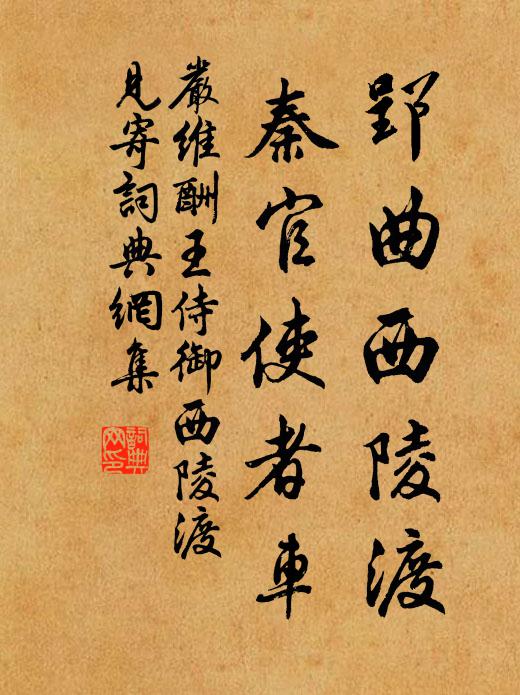 郢曲西陵渡
秦官使者車
嚴維酬王侍御西陵渡
見寄詞典網集
詞典網印